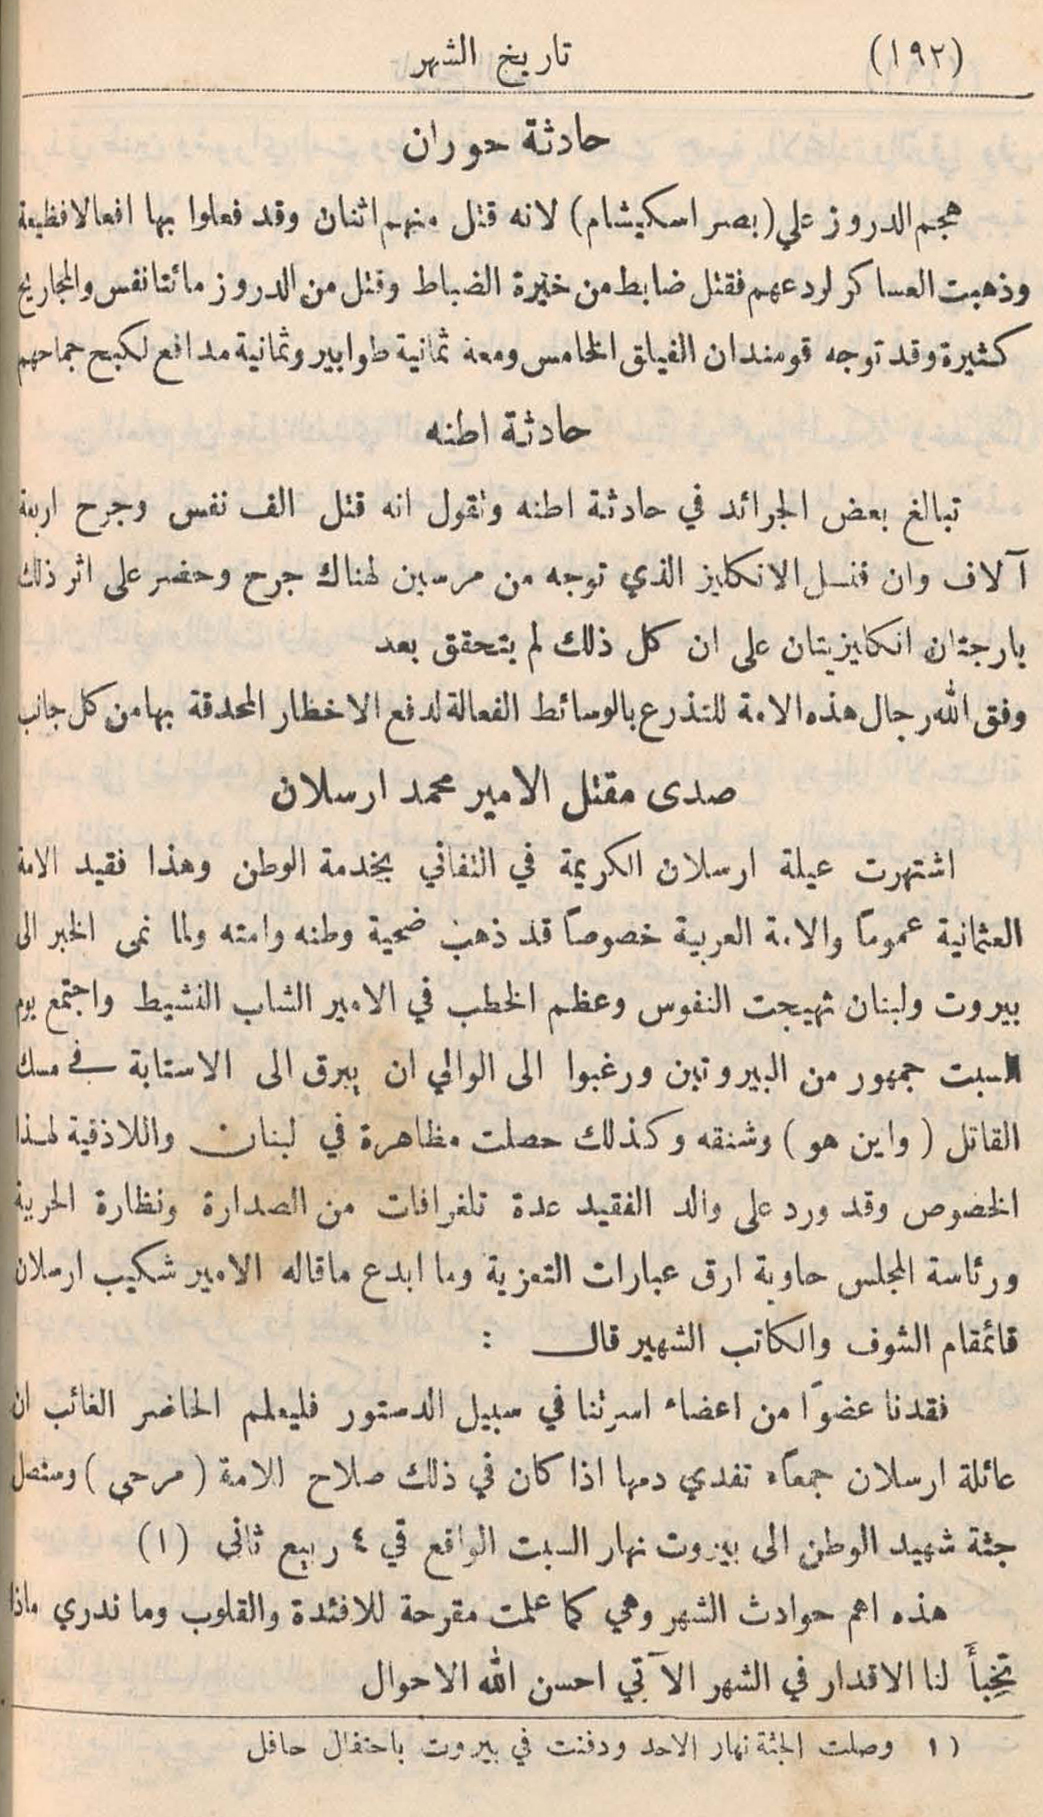 (١٩٢) تاريخ الشهر
حادثة حوران
هجم الدروز علي (بصر اسكيشام) لانه قتل منهم اثنان وقد فعلوا بها افعالا فظيعة
وذهبت العساكر لردعهم فقتل ضابط من خيرة الضباط وقتل من الدروز مائتا نفس والمجاريح
كثيرة وقد توجه قومندان الفيلق الخامس ومعه ثمانية طوابير وثمانية مدافع لكبح جماحهم
حادثة اطنه
تبالغ بعض الجرائد في حادثة اطنه وتقول انه قتل الف نفس وجرح اربعة
آلاف وان قنسل الانكليز الذي توجه من مرسين لهناك جرح وحضر على اثر ذلك
بارجتان انكليزيتان على ان كل ذلك لم يتحقق بعد
وفق الله رجال هذه الامة للتذرع بالوسائط الفعالة لدفع الاخطار المحدقة بها من كل جانب
صدى مقتل الامير محمد ارسلان
اشتهرت عيلة ارسلان الكريمة في التفاني بخدمة الوطن وهذا فقيد الامة
العثمانية عموماً والامة العربية خصوصاً قد ذهب ضحية وطنه وامته ولما نمى الخبر الى
بيروت ولبنان تهيجت النفوس وعظم الخطب في الامير الشاب النشيط واجتمع يوم
السبت جمهور من البيروتيين ورغبوا الى الوالي ان يبرق الى الاستابة في مسك
القاتل (واين هو) وشنقه وكذلك حصلت مظاهرة في لبنان واللاذقية لهذا
الخصوص وقد ورد على والد الفقيد عدة تلغرافات من الصدارة ونظارة الحربية
ورئاسة المجلس حاوية ارق عبارات التعزية وما ابدع ماقاله الامير شكيب ارسلان
قائمقام الشوف والكاتب الشهير قال :
فقدنا عضوًا من اعضاء اسرتنا في سبيل الدستور فليعلم الحاضر الغائب ان
عائلة ارسلان جمعاء تفدي دمها اذا كان في ذلك صلاح الامة (مرحى) وستصل
جثة شهيد الوطن الى بيروت نهار السبت الواقع في ٤ ربيع ثانى (١)
هذه اهم حوادث الشهر وهي كما علمت مقرحة للافئدة والقلوب وما ندري ماذا
تخبأ لنا الاقدار في الشهر الآتي احسن الله الاحوال
١) وصلت الجثة نهار الاحد ودفنت في بيروت باحتفال حافل